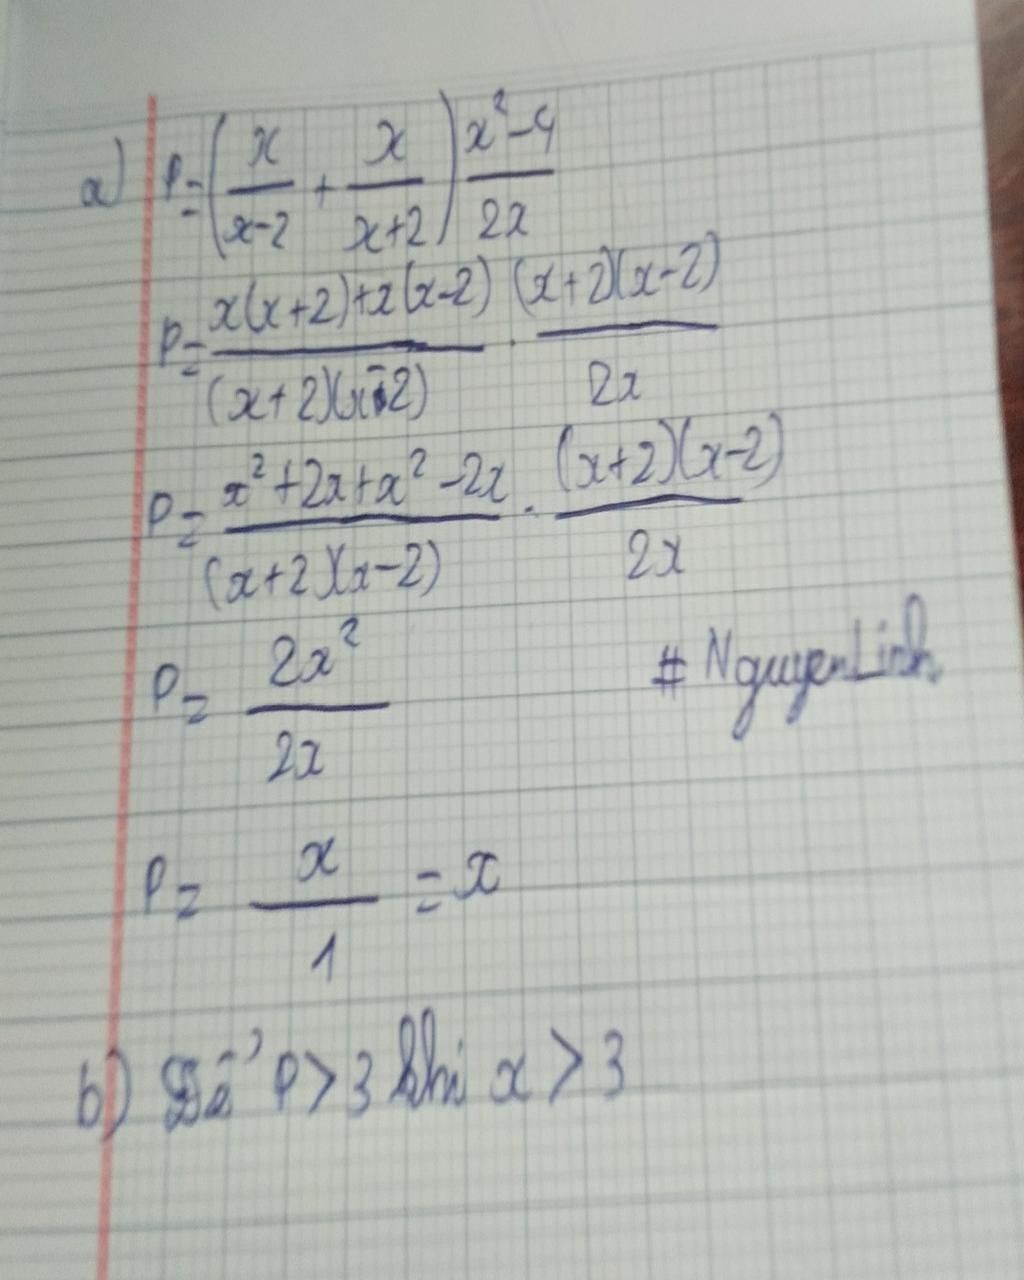 a) P = (x/(x-2) + x/(x+2)) (x²-4)/(2x)
P = (x(x+2)+x(x-2))/((x+2)(x-2)) . ((x+2)(x-2))/(2x)
P = (x²+2x+x²-2x)/((x+2)(x-2)) . ((x+2)(x-2))/(2x)
P = 2x²/2x
# NguyenLinh
P = x/1 = x
b) Để P > 3 khi x > 3